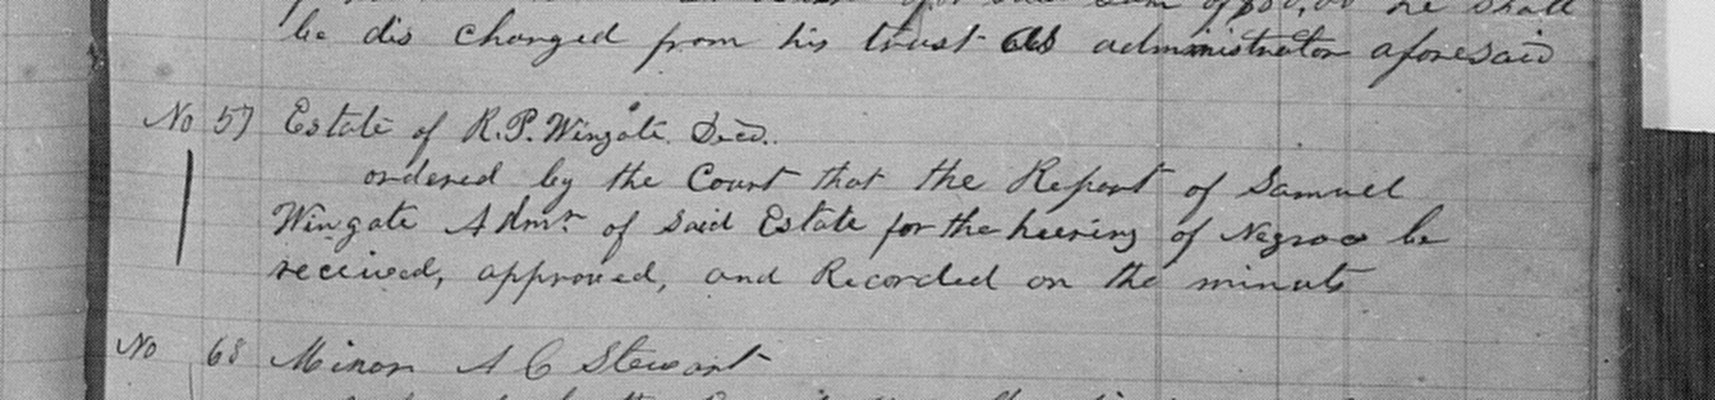 said sum of $80,00 he shall
be dis charged from his trust as administrator aforesaid
No 57 Estate of R.P. Wingate Decd.
ordered by the Court that the Report of Samuel
Wingate Admr of said Estate for the heiring of Negroes be
received, approved, and Recorded on the minuts
No 68 Minor A C Stewart